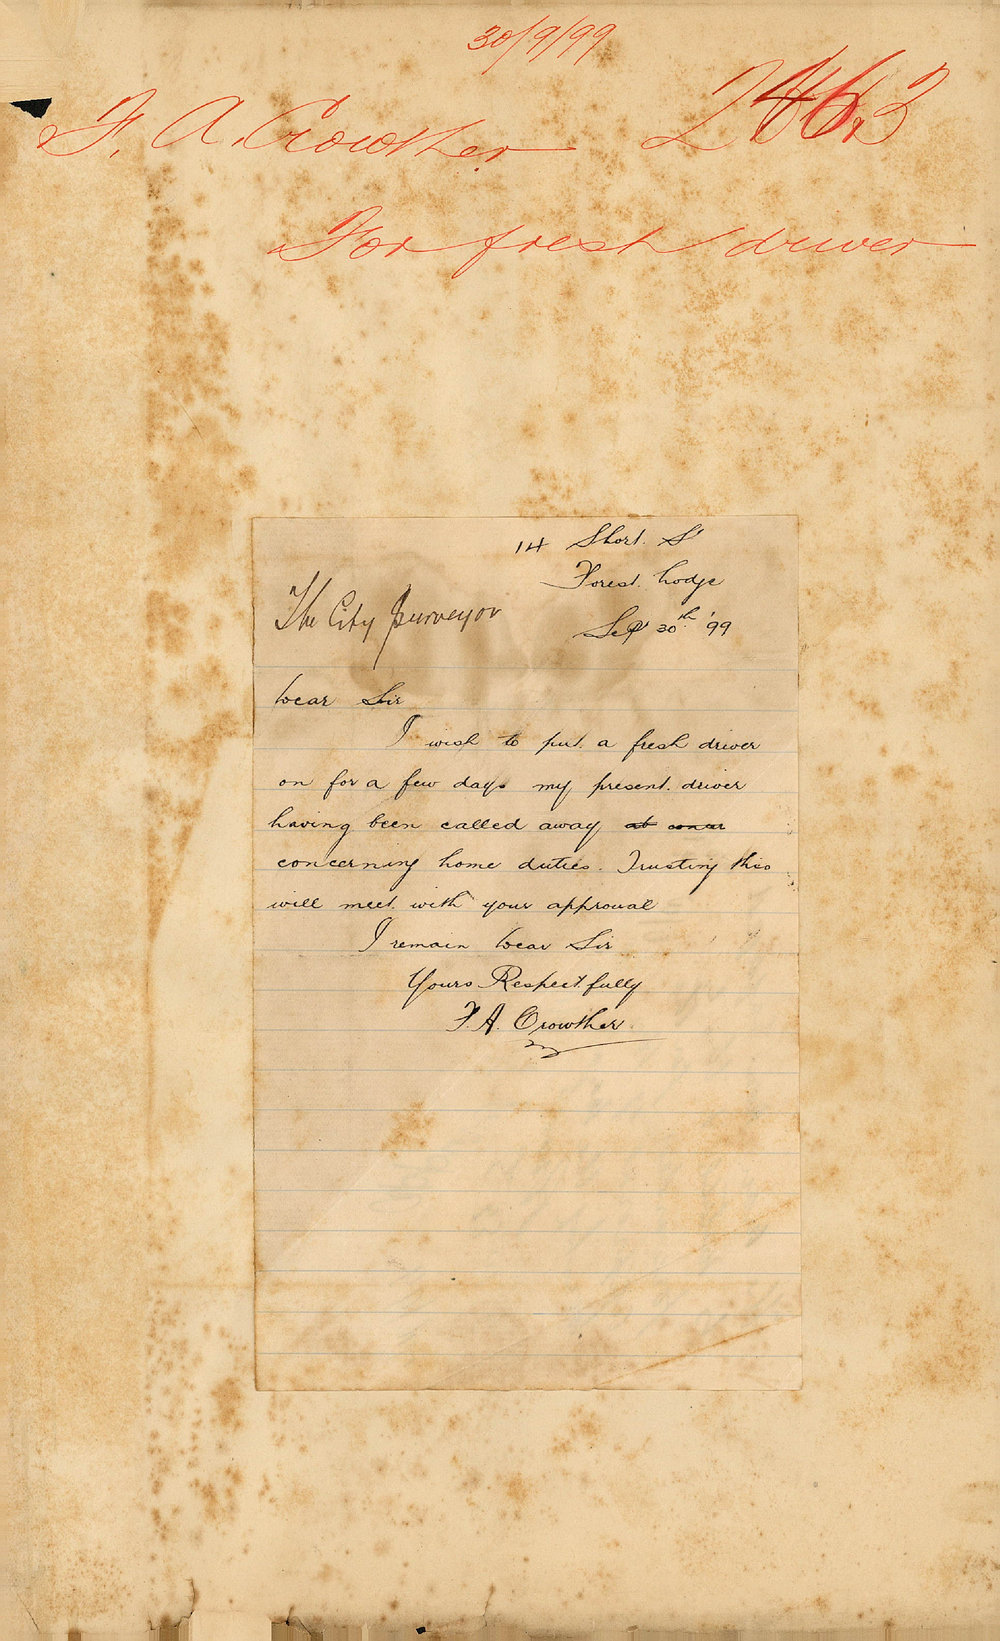 30/9/99
F. A. Crowther 2463
For fresh driver
14 Short St
Forest Lodge
Sept 30th '99
The City Surveyor
Dear Sir
I wish to put a fresh driver
on for a few days my present driver
having been called away
concerning home duties. Trusting this
will meet with your approval
I remain Dear Sir
Yours Respectfully
F. A. Crowther